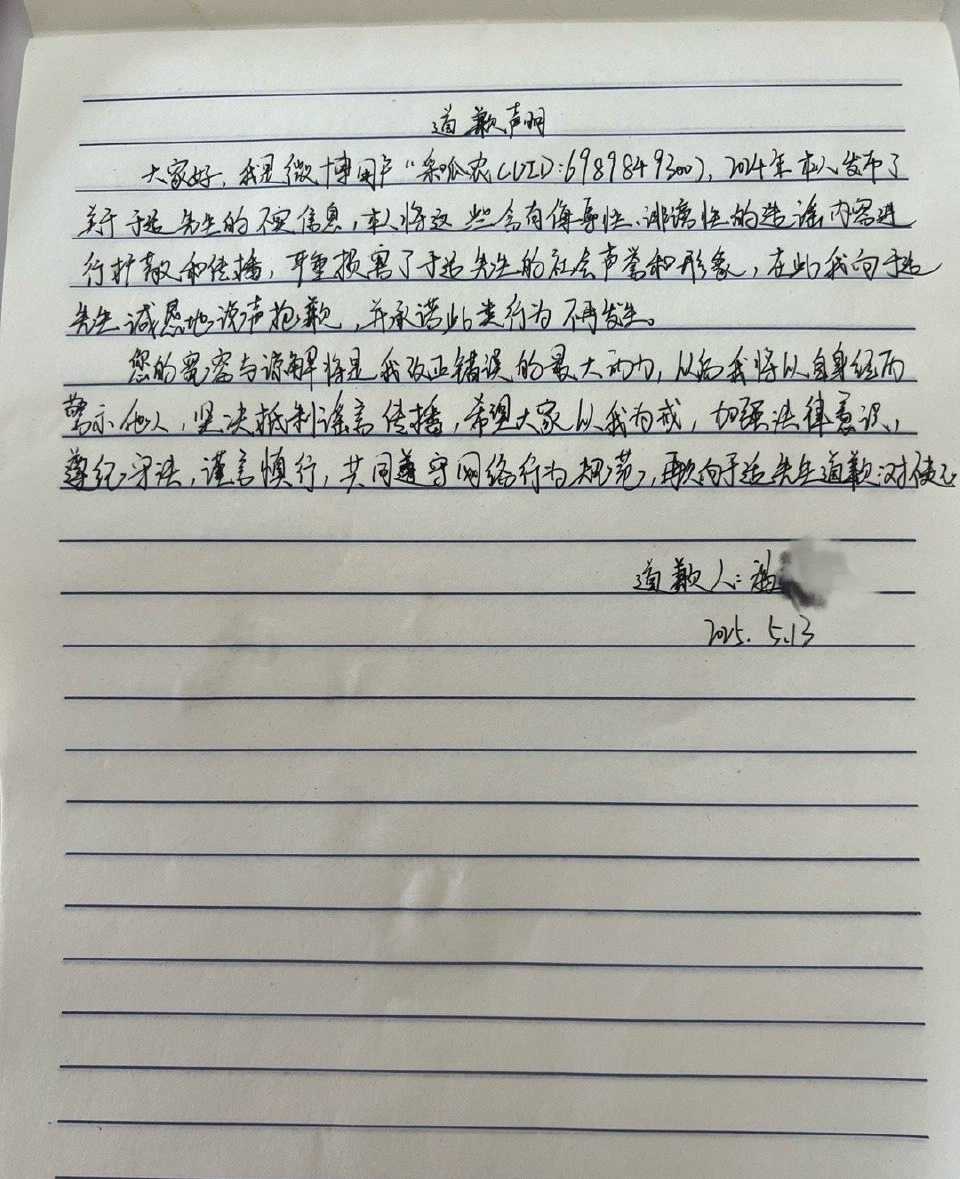 道歉声明
大家好，我是微博用户“采呱农(UID:6989849300)，2024年本人发布了
关于于适先生的不实信息，本人将这些含有侮辱性、诽谤性的造谣内容进
行扩散和传播，严重损害了于适先生的社会声誉和形象，在此我向于适
先生诚恳地说声抱歉，并承诺此类行为不再发生。
您的宽容与谅解将是我改正错误的最大动力，以后我将以自身经历
警示他人，坚决抵制谣言传播，希望大家以我为戒，加强法律意识，
遵纪守法，谨言慎行，共同遵守网络行为规范，再次向于适先生道歉对不
道歉人：
2025.5.13